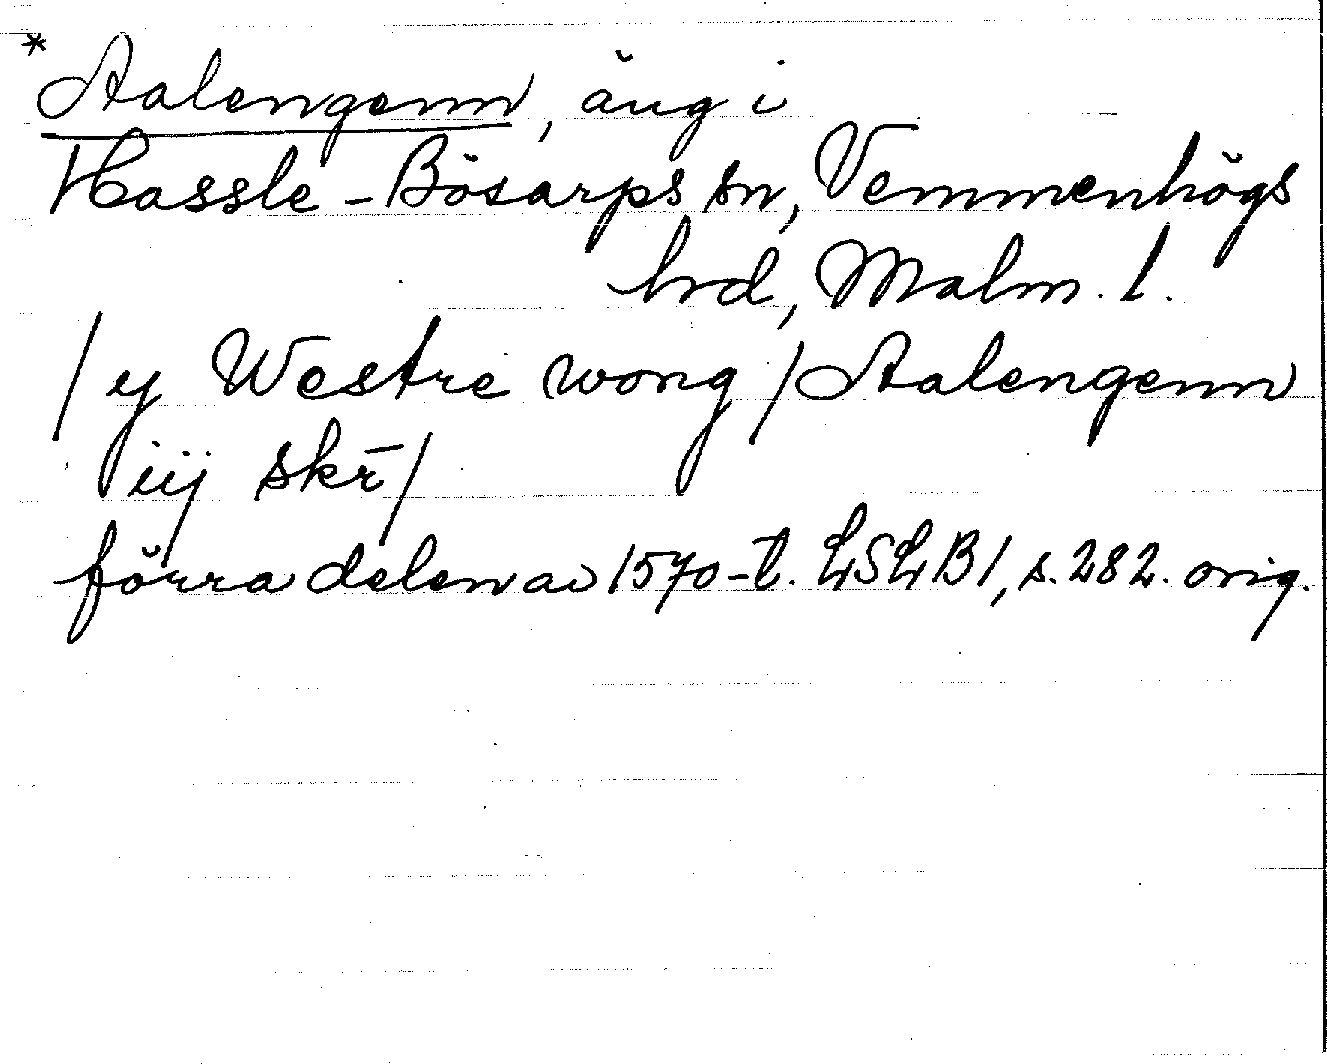 *Aalengenn, äng i
Hassle-Bösarps sn, Vemmenhögs
hrd, Malm. l.
/ y Westre wong / Aalengenn
iij skr̄ /
förra delen av 1570-t. LSLB1, s. 282. orig.